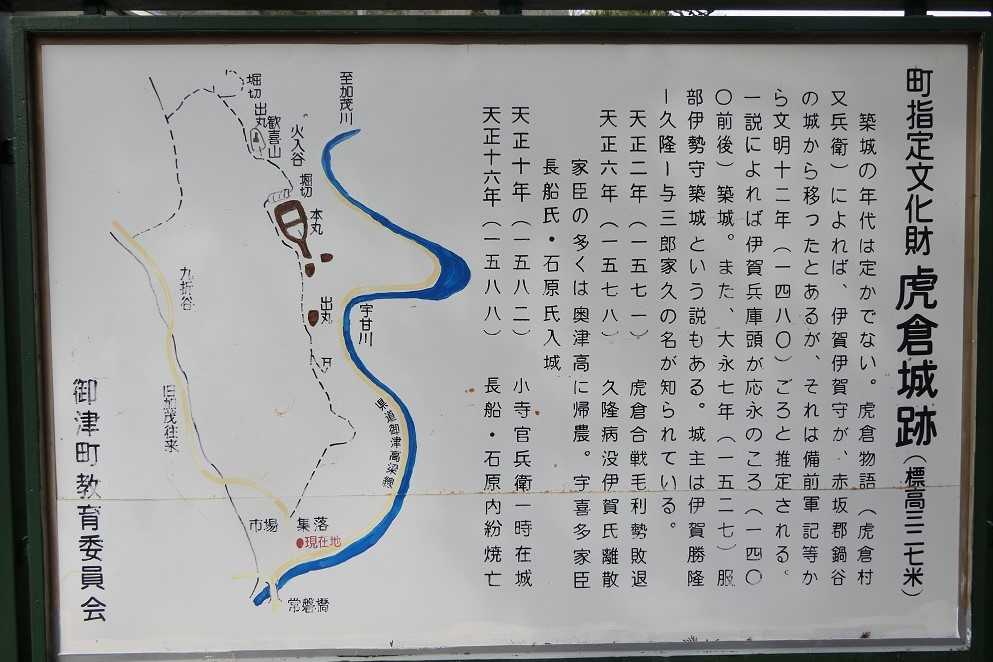 町指定文化財 虎倉城跡（標高三二七米）
築城の年代は定かでない。虎倉物語（虎倉村
又兵衛）によれば、伊賀伊賀守が、赤坂郡鍋谷
の城から移つたとあるが、それは備前軍記等か
ら文明十二年（一四八〇）ごろと推定される。
一説によれば伊賀兵庫頭が応永のころ（一四〇
〇前後）築城。また、大永七年（一五二七）服
部伊勢守築城という説もある。城主は伊賀勝隆
ー久隆ー与三郎家久の名が知られている。
天正二年（一五七一）虎倉合戦毛利勢敗退
天正六年（一五七八）久隆病没伊賀氏離散
家臣の多くは奥津高に帰農。宇喜多家臣
長船氏・石原氏入城
天正十年（一五八二）小寺官兵衛一時在城
天正十六年（一五八八）長船・石原内紛焼亡
至加茂川
堀切
出丸
歓喜山
火入谷
堀切
本丸
出丸
宇甘川
九折谷
旧加茂往来
県道御津高梁線
市場
集落
●現在地
常磐橋
御津町教育委員会